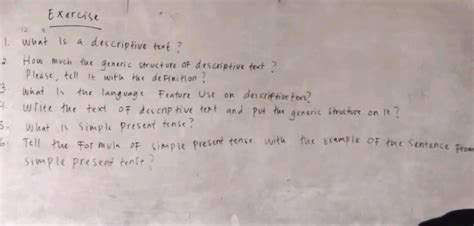 Exercise
1. What Is a descriptive text ?
2 How much the generic structure of descriptive text ?
Please, tell it with the definition ?
3. What Is the language Feature Use on descriptive text?
4. Write the text of descriptive text and put the generic structure on It ?
5. What Is Simple Present tense?
6. Tell the Formula of simple present tense with the example of the sentence From
simple present tense ?